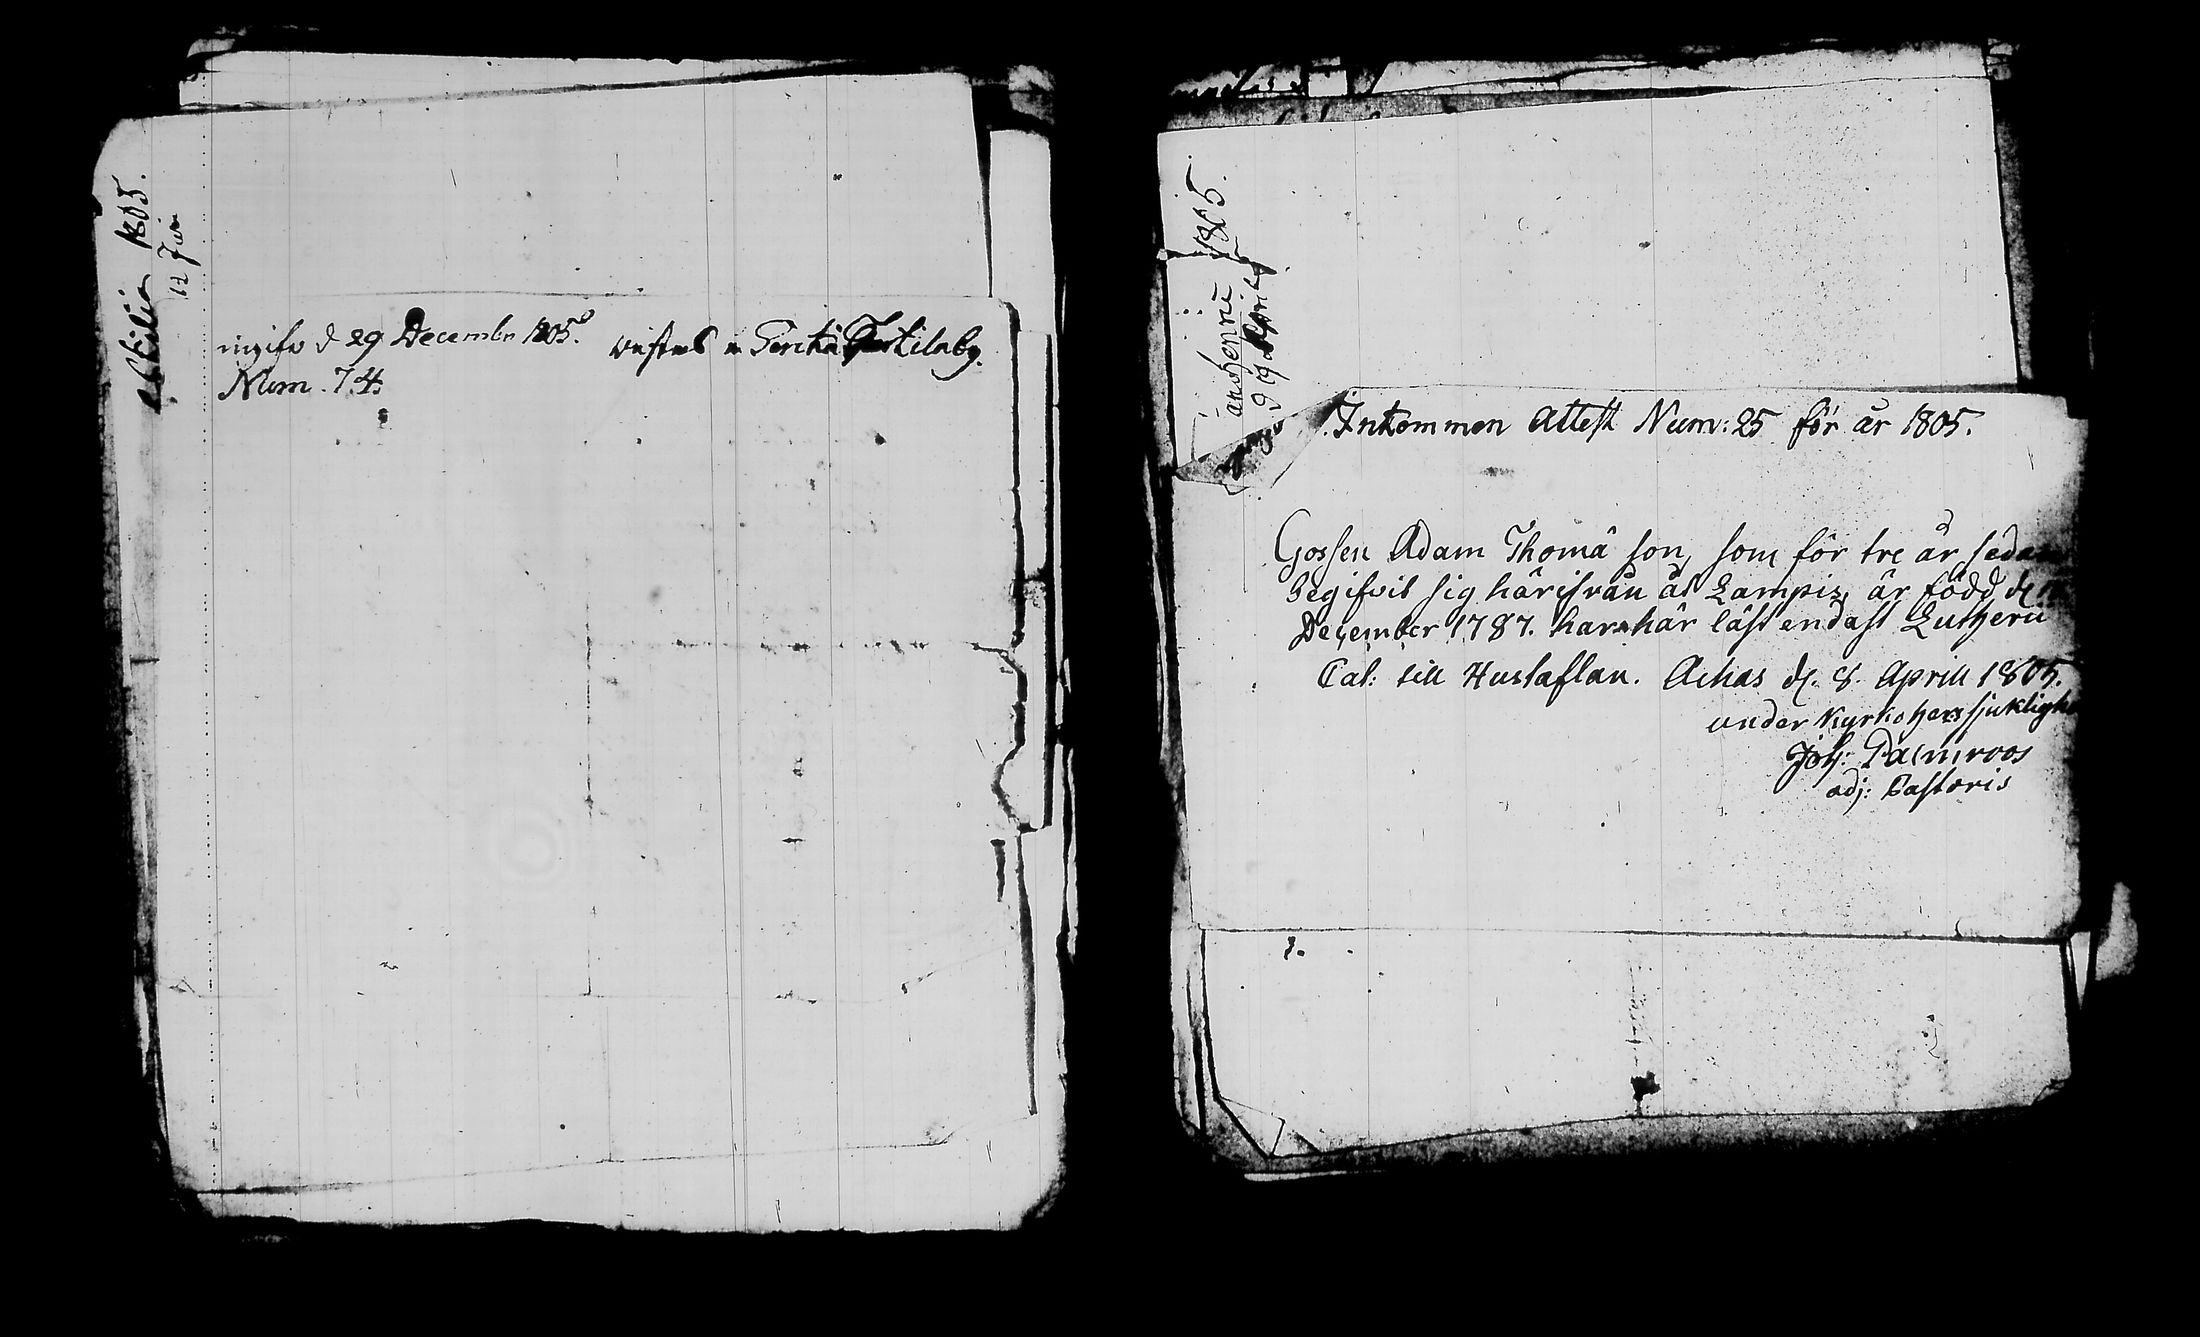 1805.
12 Juni
ingifv d 29 Decembr 1805.
Num. 74
vistas
1805.
d 19 April
Inkommen Attest Num: 25 för år 1805.
Gossen Adam Thomä son, som för tre år sedan
begifvit sig härifrån åt Lampis, är född d.
December 1787. har här läst endast Lutheri
Cat: till Hustaflan. Achas d. 8. Aprill 1805.
under Kyrkoherr sjukligh
Joh: Palmroos
adj: Pastoris